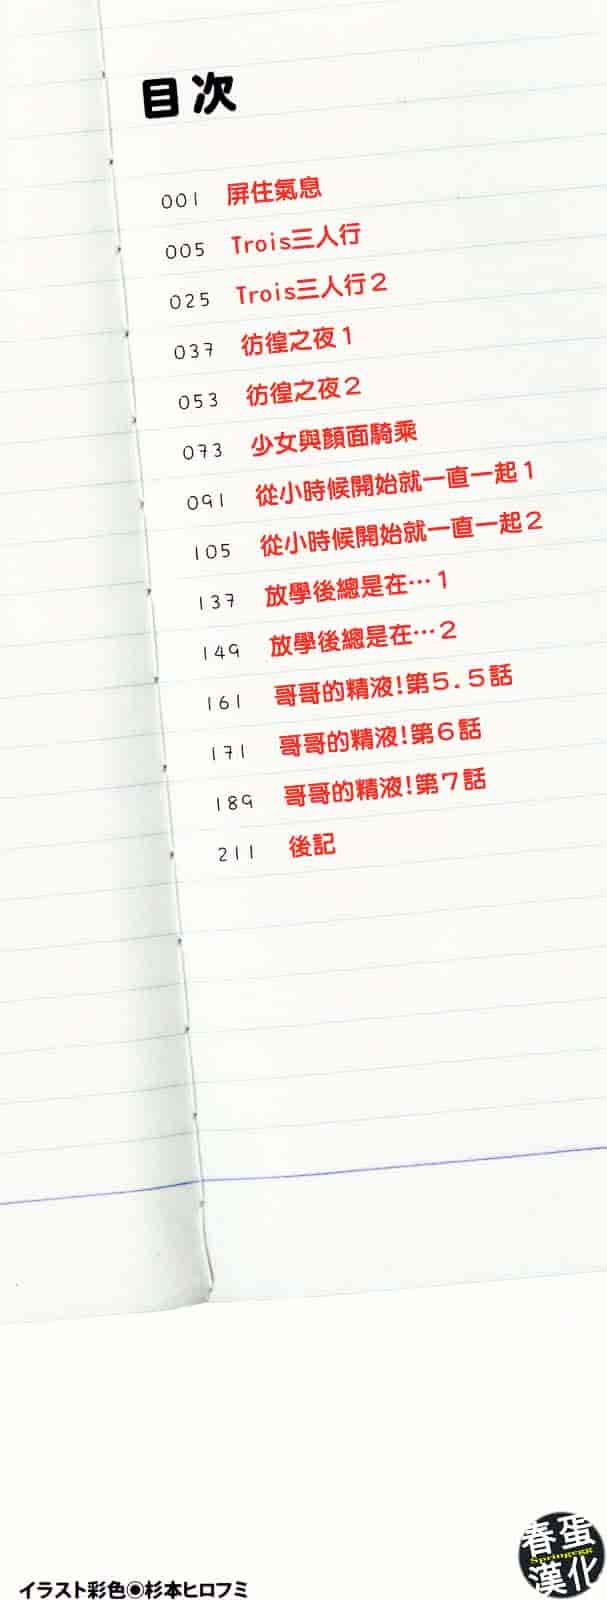 目次
001 屏住氣息
005 Trois三人行
025 Trois三人行２
037 彷徨之夜１
053 彷徨之夜２
073 少女與顏面騎乘
091 從小時候開始就一直一起１
105 從小時候開始就一直一起２
137 放學後總是在…１
149 放學後總是在…２
161 哥哥的精液!第５.５話
171 哥哥的精液!第６話
189 哥哥的精液!第７話
211 後記
春蛋
Springegg
漢化
イラスト彩色◉杉本ヒロフミ